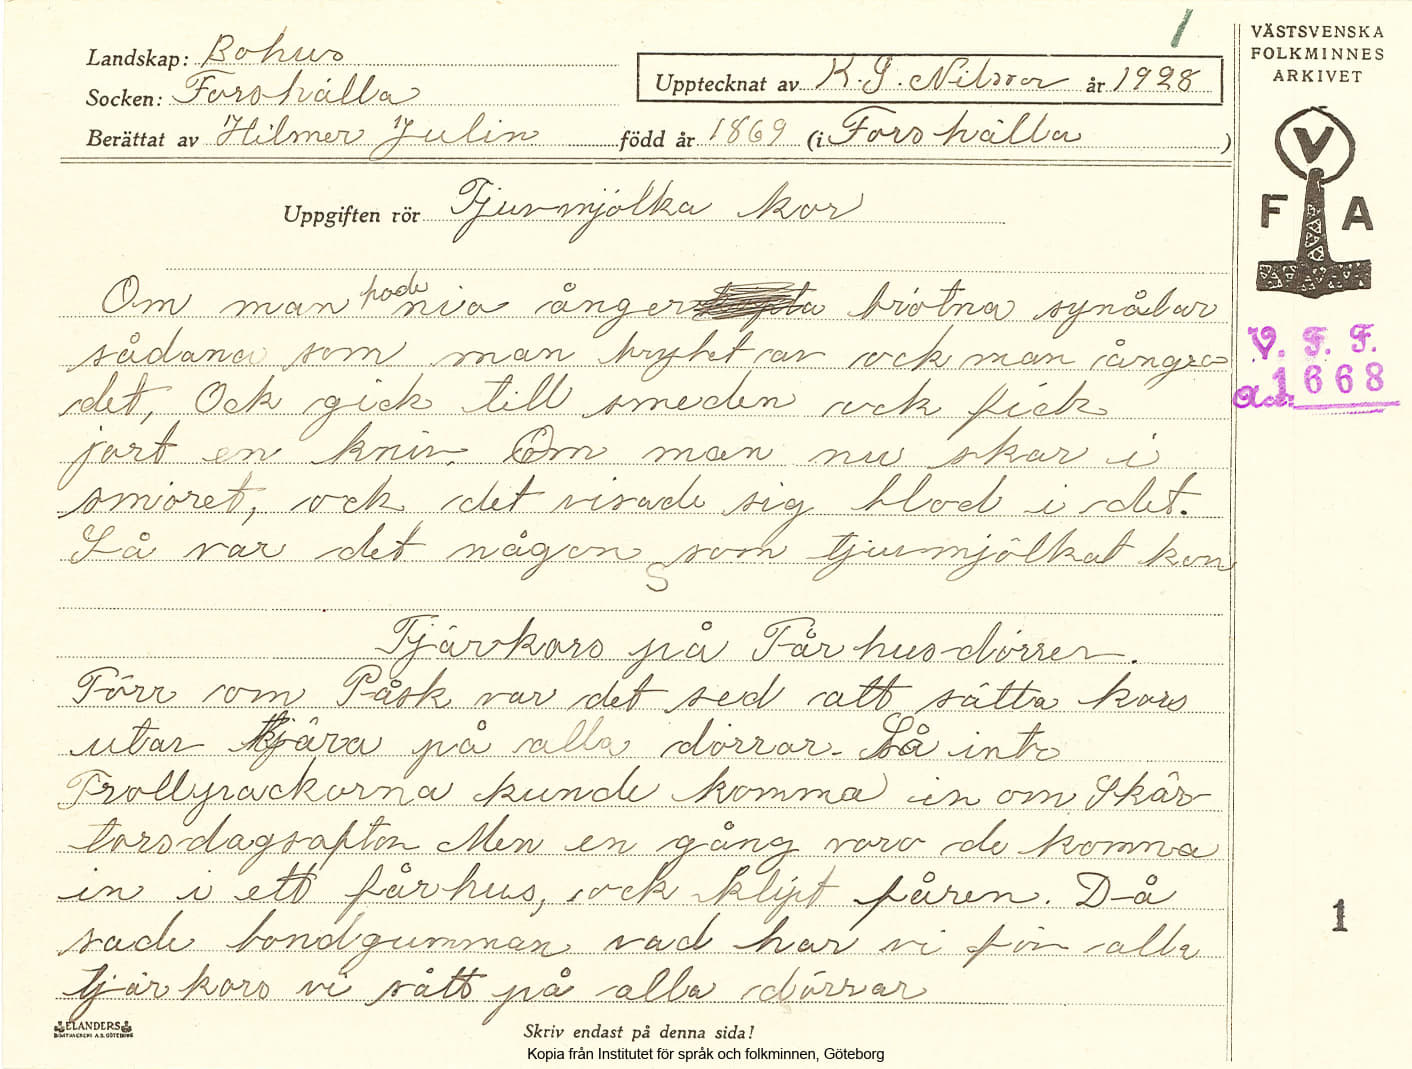 Landskap: Bohus
Socken: Forshälla
Berättat av Hilmer Julin född år 1869 (i Forshälla)
Upptecknat av K. G. Nilsson år 1928
1
VÄSTSVENSKA
FOLKMINNES
ARKIVET
V
F A
V. F. F.
Acc. 1668
Uppgiften rör Tjuvmjölka kor
Om man hade nio ånger brotna synålar
sådana som man brytet av ock man ångra
det, Ock gick till smeden ock fick
jort en kniv. Om man nu skar i
smöret, ock det visade sig blod i det.
Så var det någon som tjuvmjölkat kon
S
Tjärkors på Fårhusdörren.
Förr om Påsk var det sed att sätta kors
utav tjära på alla dörrar. Så inte
Trollpackorna kunde komma in om Skär-
torsdagsafton Men en gång voro de komna
in i ett fårhus, ock klipt fåren. Då
sade bondgumman vad har vi för alla
tjärkors vi sått på alla dörrar
1
ELANDERS
BOKTRYCKERI A.B. GÖTEBORG
Skriv endast på denna sida!
Kopia från Institutet för språk och folkminnen, Göteborg